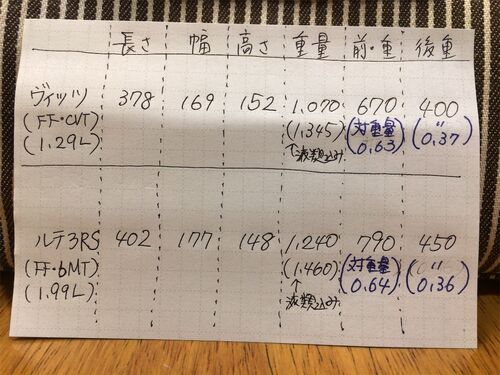 長さ 幅 高さ 重量 前・重 後重
ヴィッツ 378 169 152 1,070 670 400
(FF・CVT) (1,345) (対重量 (〃
(1.29L) ↑液類込み 0.63) 0.37)
ルテ3RS 402 177 148 1,240 790 450
(FF・6MT) (1,460) (対重量 (〃
(1.99L) ↑ 0.64) 0.36)
液類込み